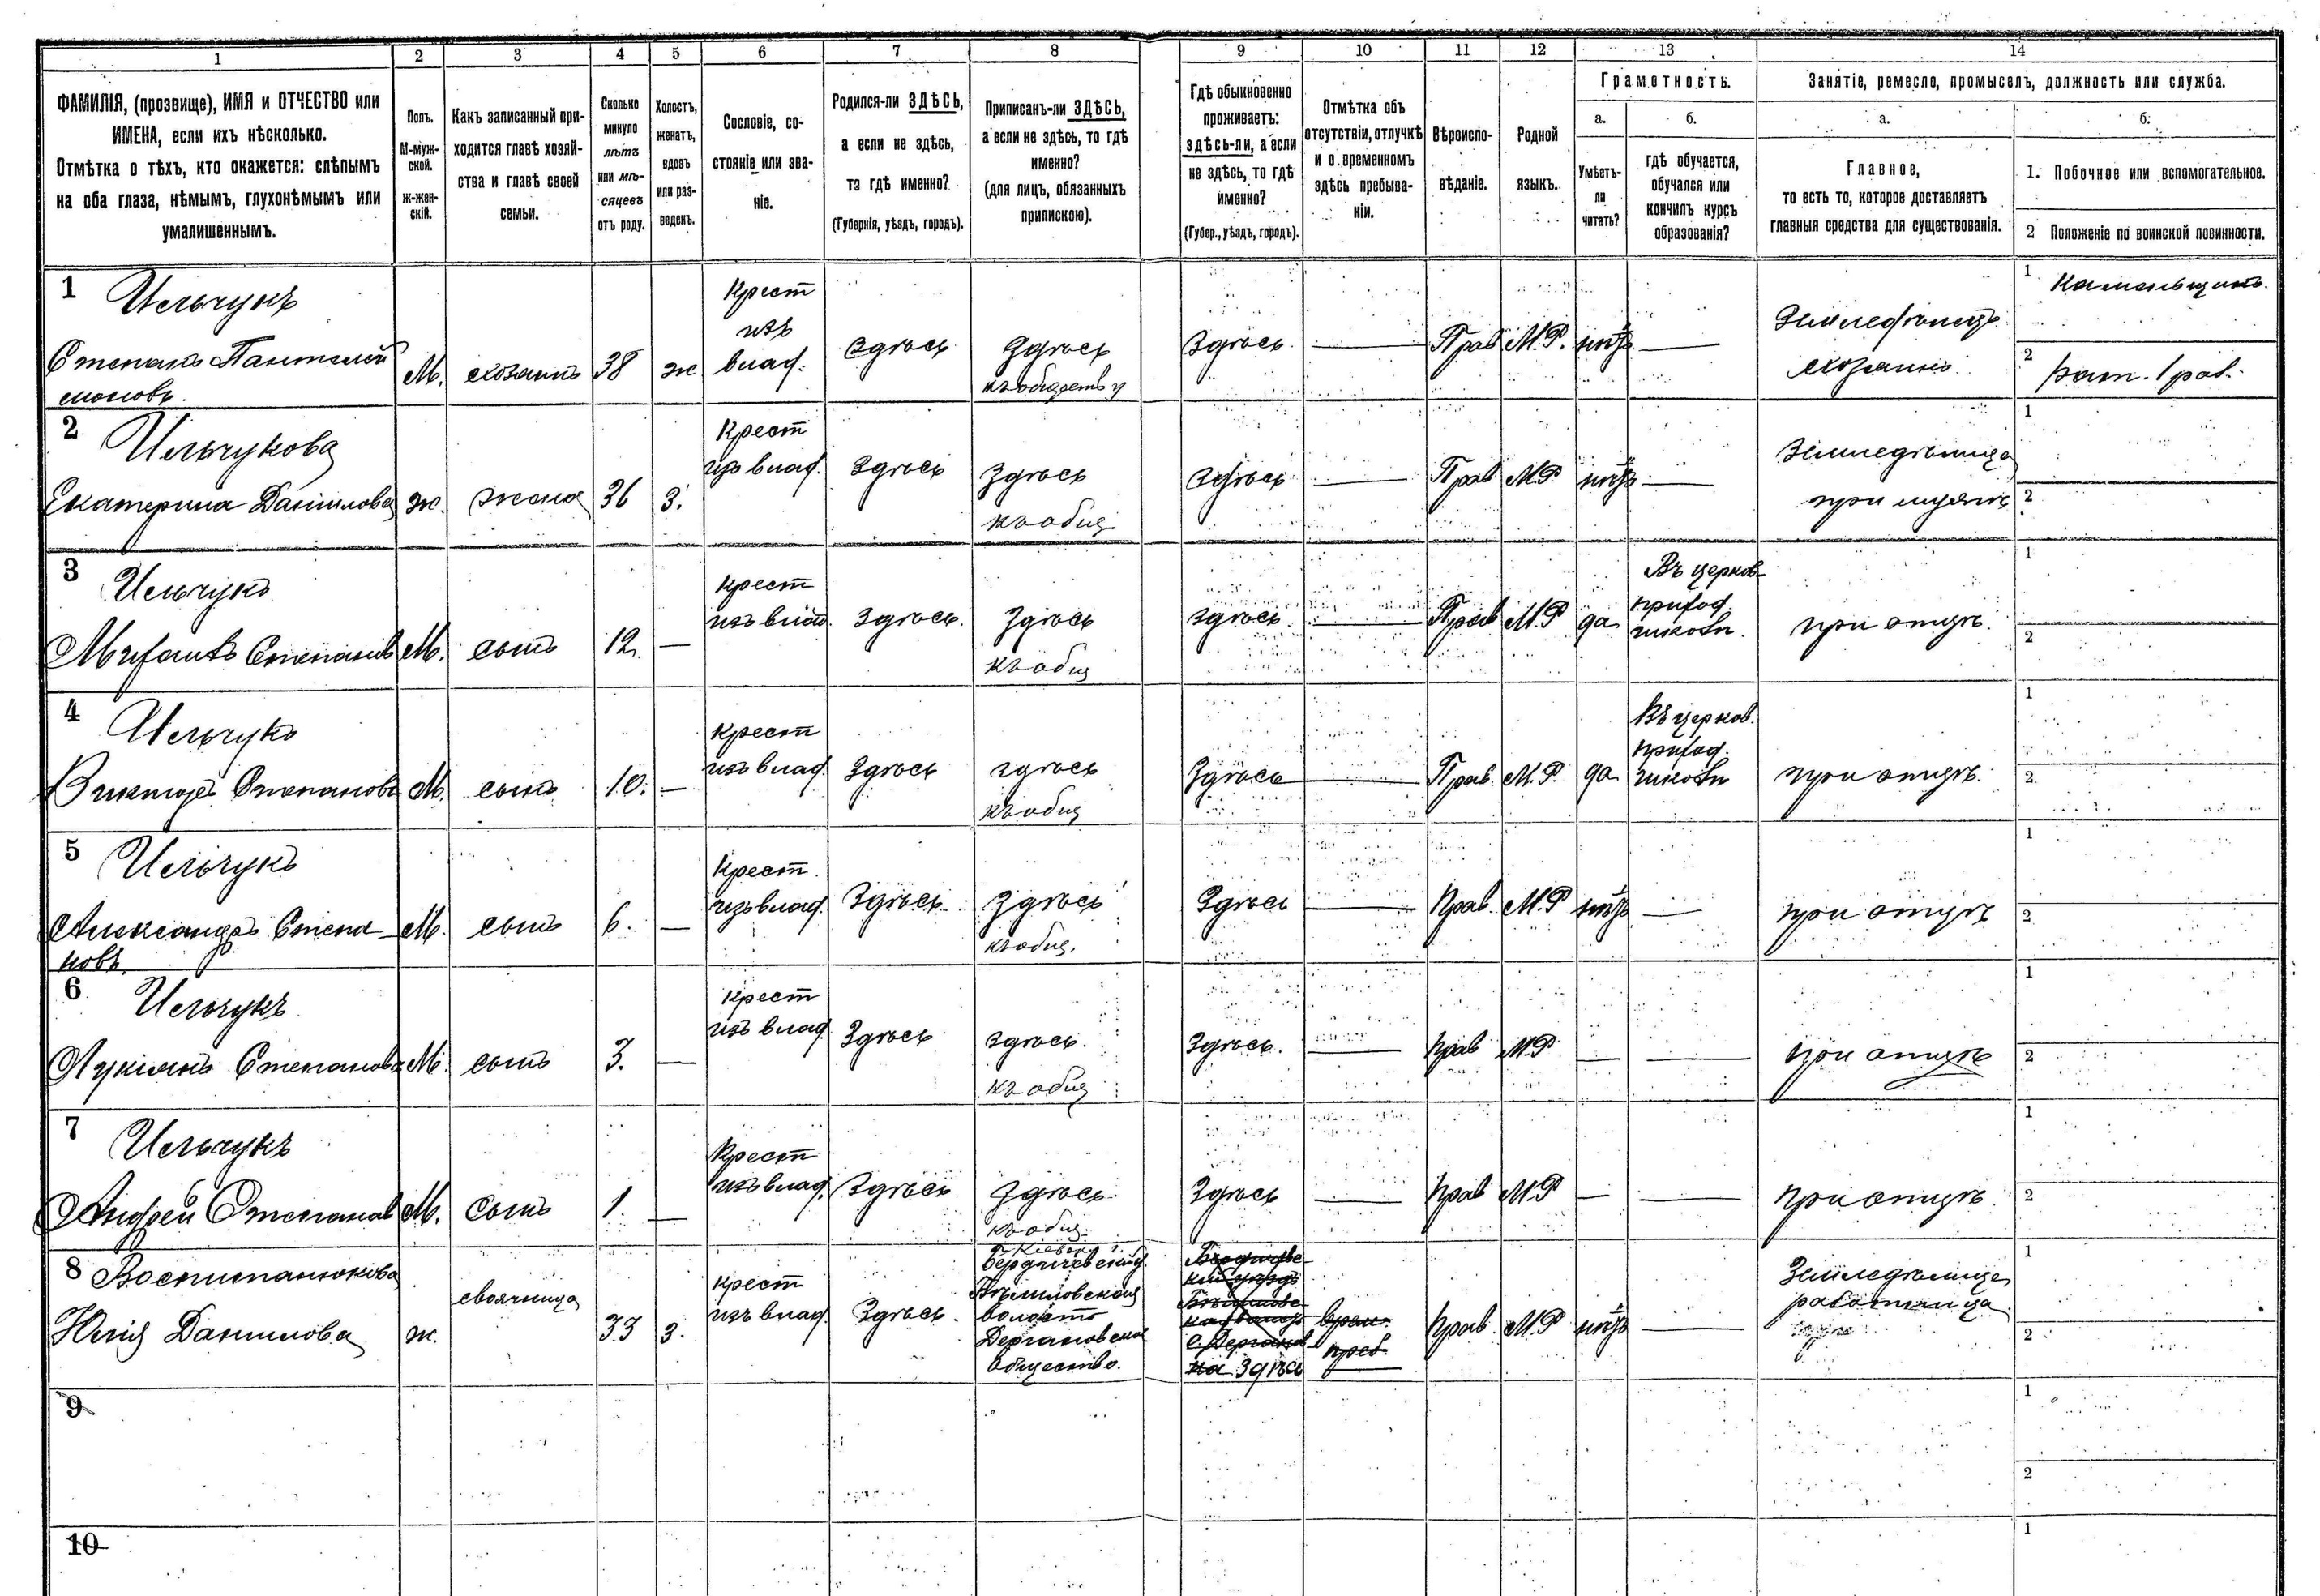 1 2 3 4 5 6 7 8 9 10 11 12 13 14
ФАМИЛІЯ, (прозвище), ИМЯ и ОТЧЕСТВО или
ИМЕНА, если ихъ нѣсколько.
Отмѣтка о тѣхъ, кто окажется: слѣпымъ
на оба глаза, нѣмымъ, глухонѣмымъ или
умалишеннымъ.
Полъ.
М-муж-
ской.
Ж-жен-
скій.
Какъ записанный при-
ходится главѣ хозяй-
ства и главѣ своей
семьи.
Сколько
минуло
лѣтъ
или мѣ-
сяцевъ
отъ роду.
Холостъ,
женатъ,
вдовъ
или раз-
веденъ.
Сословіе, со-
стояніе или зва-
ніе.
Родился-ли ЗДѢСЬ,
а если не здѣсь,
то гдѣ именно?
(Губернія, уѣздъ, городъ).
Приписанъ-ли ЗДѢСЬ,
а если не здѣсь, то гдѣ
именно?
(для лицъ, обязанныхъ
припискою).
Гдѣ обыкновенно
проживаетъ:
здѣсь-ли, а если
не здѣсь, то гдѣ
именно?
(Губер., уѣздъ, городъ).
Отмѣтка объ
отсутствіи, отлучкѣ
и о временномъ
здѣсь пребыва-
ніи.
Вѣроиспо-
вѣданіе.
Родной
языкъ.
Грамотность.
а.
Умѣетъ-
ли
читать?
б.
гдѣ обучается,
обучался или
кончилъ курсъ
образованія?
Занятіе, ремесло, промыселъ, должность или служба.
а.
Главное,
то есть то, которое доставляетъ
главныя средства для существованія.
б.
1. Побочное или вспомогательное.
2 Положеніе по воинской повинности.
1
Ильчукъ
Степанъ Пантелей
моновъ.
М.
хозяинъ
38
ж
Крест
изъ
влад.
Здѣсь
Здѣсь
къ обществу
Здѣсь
—
Прав
М.Р.
нѣтъ
—
Земледѣлецъ
хозяинъ
1
Каменьщикъ.
2
рат. 1 раз.
2
Ильчукова
Екатерина Данилова
ж.
жена
36
з.
Крест
изъ влад.
Здѣсь
Здѣсь
къ общ
Здѣсь
—
Прав
М.Р
нѣтъ
—
Земледѣлица
при мужѣ
1
2
3
Ильчукъ
Михаилъ Степановъ
М.
сынъ
12.
—
Крест
изъ влад.
Здѣсь.
Здѣсь
къ общ
Здѣсь
—
Прав
М.Р
да
Въ церков-
приход.
школѣ.
при отцѣ.
1
2
4
Ильчукъ
Викторъ Степановъ
М.
сынъ
10.
—
Крест
изъ влад.
Здѣсь
здѣсь
къ общ
Здѣсь
—
Прав.
М.Р.
да
Въ церков.
приход.
школѣ
при отцѣ.
1
2
5
Ильчукъ
Александръ Степа
новъ
М.
сынъ
6.
—
Крест.
изъ влад.
Здѣсь
Здѣсь
къ общ.
Здѣсь
—
Прав.
М.Р
нѣтъ
—
при отцѣ
1
2
6
Ильчукъ
Лукіянъ Степановъ
М.
сынъ
3.
—
Крест
изъ влад
Здѣсь
здѣсь.
къ общ
Здѣсь.
—
Прав
М.Р
—
—
при отцѣ
1
2
7
Ильчукъ
Андрей Степановъ
М.
сынъ
1.
—
Крест
изъ влад.
Здѣсь
Здѣсь.
къ общ.
Здѣсь
—
Прав
М.Р
—
—
при отцѣ.
1
2
8
Воспитанюкова
Юлія Данилова
ж.
своячница
33
з.
крест
изъ влад.
Здѣсь.
Кіевск. г.
Бердичевскій у.
волость
Дергановское
общество.
Здѣсь
врем.
преб
Прав.
М.Р
нѣтъ
—
Земледѣлица
работница
1
2
9
1
2
10
1